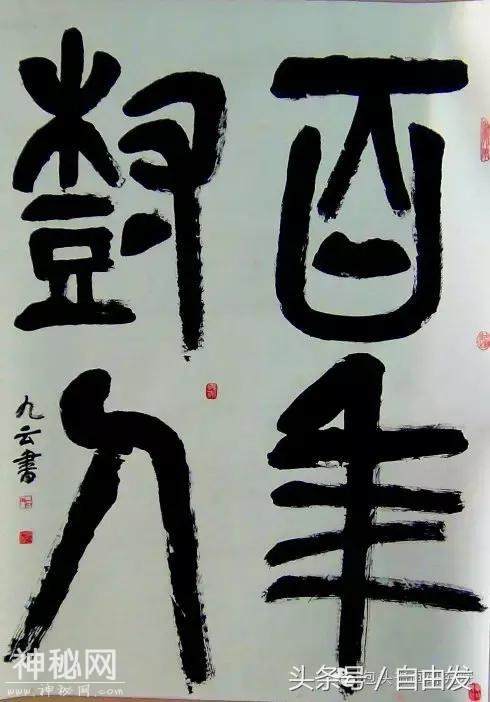 百年
樹人
九云書
神秘网
www.神秘网.com
头条号/自由发